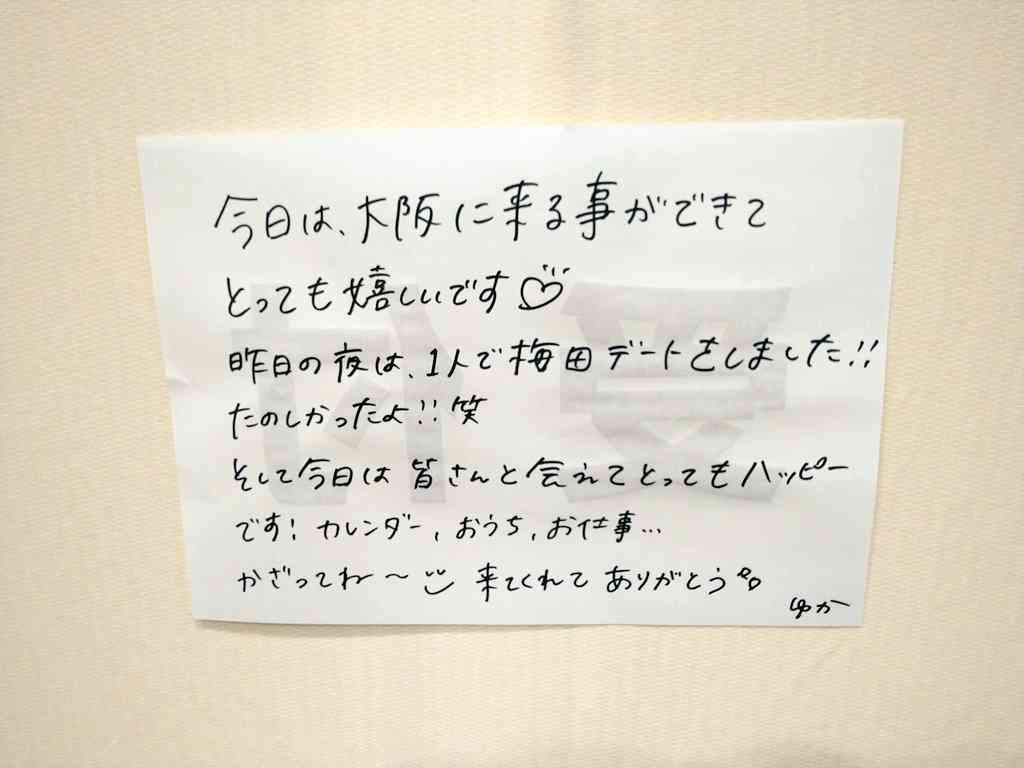 今日は、大阪に来る事ができて
とっても嬉しいです♡
昨日の夜は、1人で梅田デートをしました!!
たのしかったよ!!笑
そして今日は皆さんと会えてとってもハッピー
です! カレンダー、おうち、お仕事...
かざってね〜 来てくれてありがとう
ゆか
受付